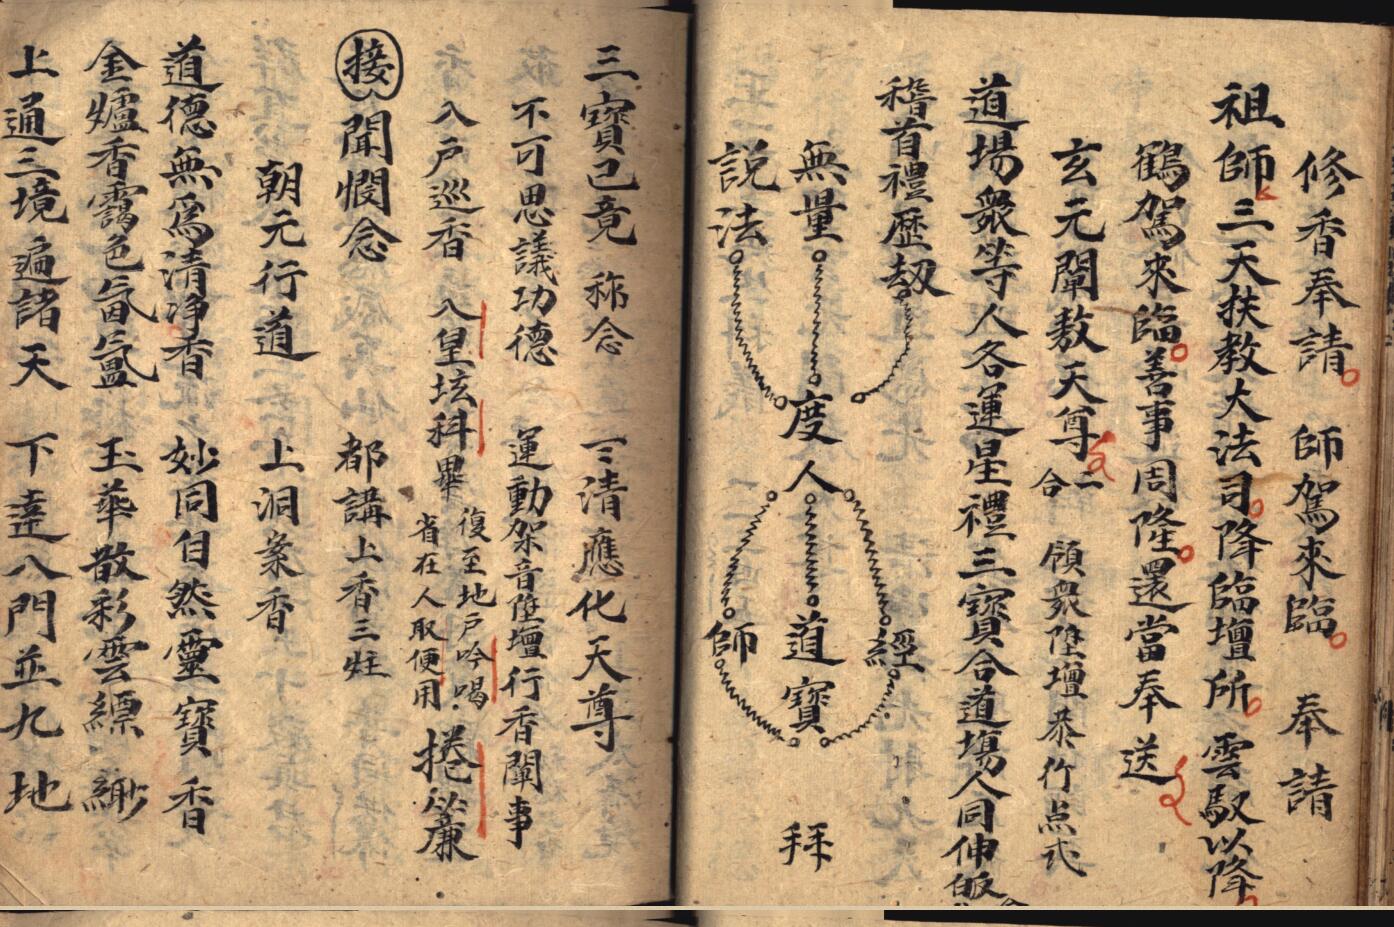 修香奉請 師駕來臨 奉請
祖師三天扶教大法司降臨壇所雲馭以降
鶴駕來臨善事周隆還當奉送
玄元闡教天尊 二合 領眾陞壇恭行点式
道場眾等人各運星禮三寳合道塲人同伸皈
稽首禮歷劫
無量度人道寳 拜
說法 經師
三寳已竟 称念 三清應化天尊
不可思議功德 運動架音陞壇行香闡事
入戶巡香 八皇垓科畢 復至地戶吟喝 省在人取便用 捲簾
接 聞憫念 都講上香三炷
朝元行道 上洞案香
道德無為清净香 妙同自然靈寳香
金爐香靄色氤氳 玉華散彩雲縹緲
上通三境遍諸天 下達八門並九地